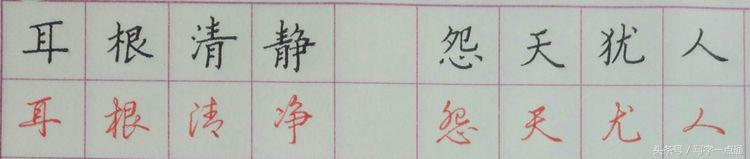 耳根清静 怨天犹人
耳根清净 怨天尤人
头条号／写字一点通